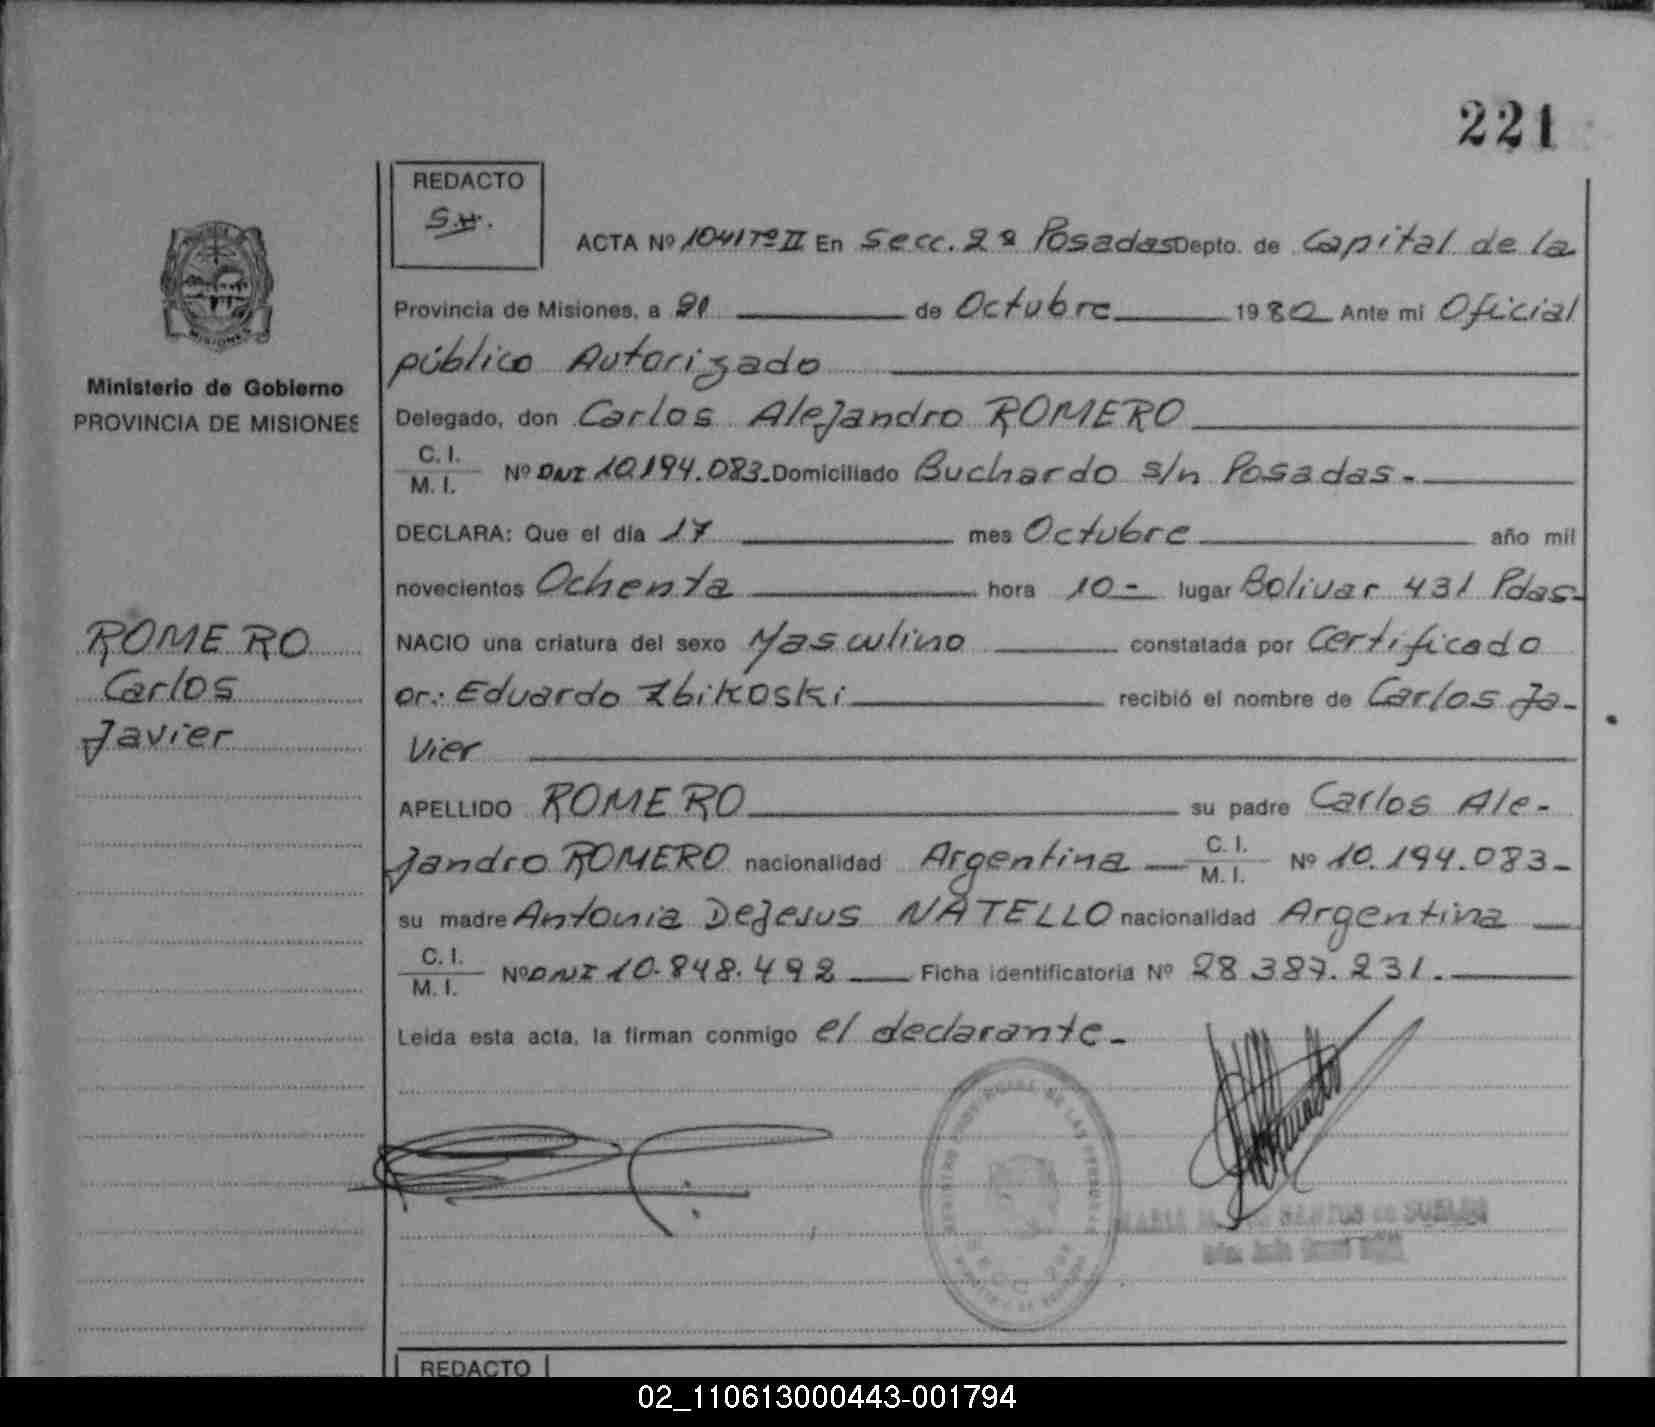 221
REDACTO
S.H.
ACTA Nº 1041 Tº II En Secc. 2ª Posadas Depto. de Capital de la
Provincia de Misiones, a 21 de Octubre 1980 Ante mi Oficial
público Autorizado
Delegado, don Carlos Alejandro ROMERO
C. I.
M. I. Nº DNI 10.194.083. Domiciliado Buchardo s/n Posadas.-
DECLARA: Que el día 17 mes Octubre año mil
novecientos Ochenta hora 10- lugar Bolivar 431 Pdas.
NACIO una criatura del sexo Masculino constatada por Certificado
Dr.: Eduardo Zbikoski recibió el nombre de Carlos Ja-
vier
APELLIDO ROMERO su padre Carlos Ale-
jandro ROMERO nacionalidad Argentina C. I.
M. I. Nº 10.194.083-
su madre Antonia DeJesus NATELLO nacionalidad Argentina
C. I.
M. I. Nº DNI 10.848.492 Ficha identificatoria Nº 28.387.231.
Leida esta acta, la firman conmigo el declarante.-
Ministerio de Gobierno
PROVINCIA DE MISIONES
ROMERO
Carlos
Javier
REDACTO
02_110613000443-001794